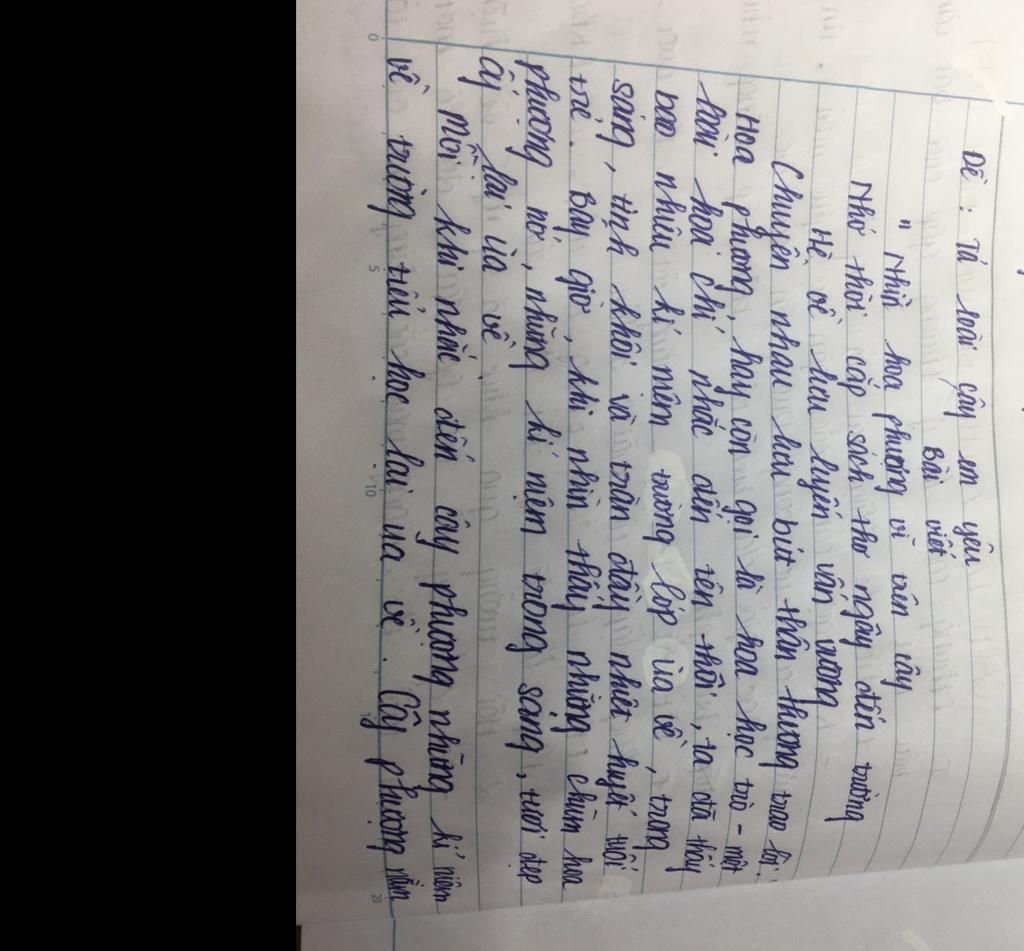 Đề : Tả loài cây em yêu
Bài viết
" Nhìn hoa phượng vĩ trên cây
Nhớ thời cắp sách thơ ngây đến trường
Hè về lưu luyến vấn vương
Chuyền nhau lưu bút thân thương trao lời."
Hoa phượng, hay còn gọi là hoa học trò - một
loài hoa chỉ nhắc đến tên thôi, ta đã thấy
bao nhiêu kỉ niệm trường lớp ùa về, trong
sáng, tinh khôi và tràn đầy nhiệt huyết tuổi
trẻ. Bây giờ, khi nhìn thấy những chùm hoa
phượng nở, những kỉ niệm trong sáng, tươi đẹp
ấy lại ùa về.
Mỗi khi nhắc đến cây phượng những kỉ niệm
về trường tiểu học lại ùa về. Cây phượng nằm
0
5
10
15
20